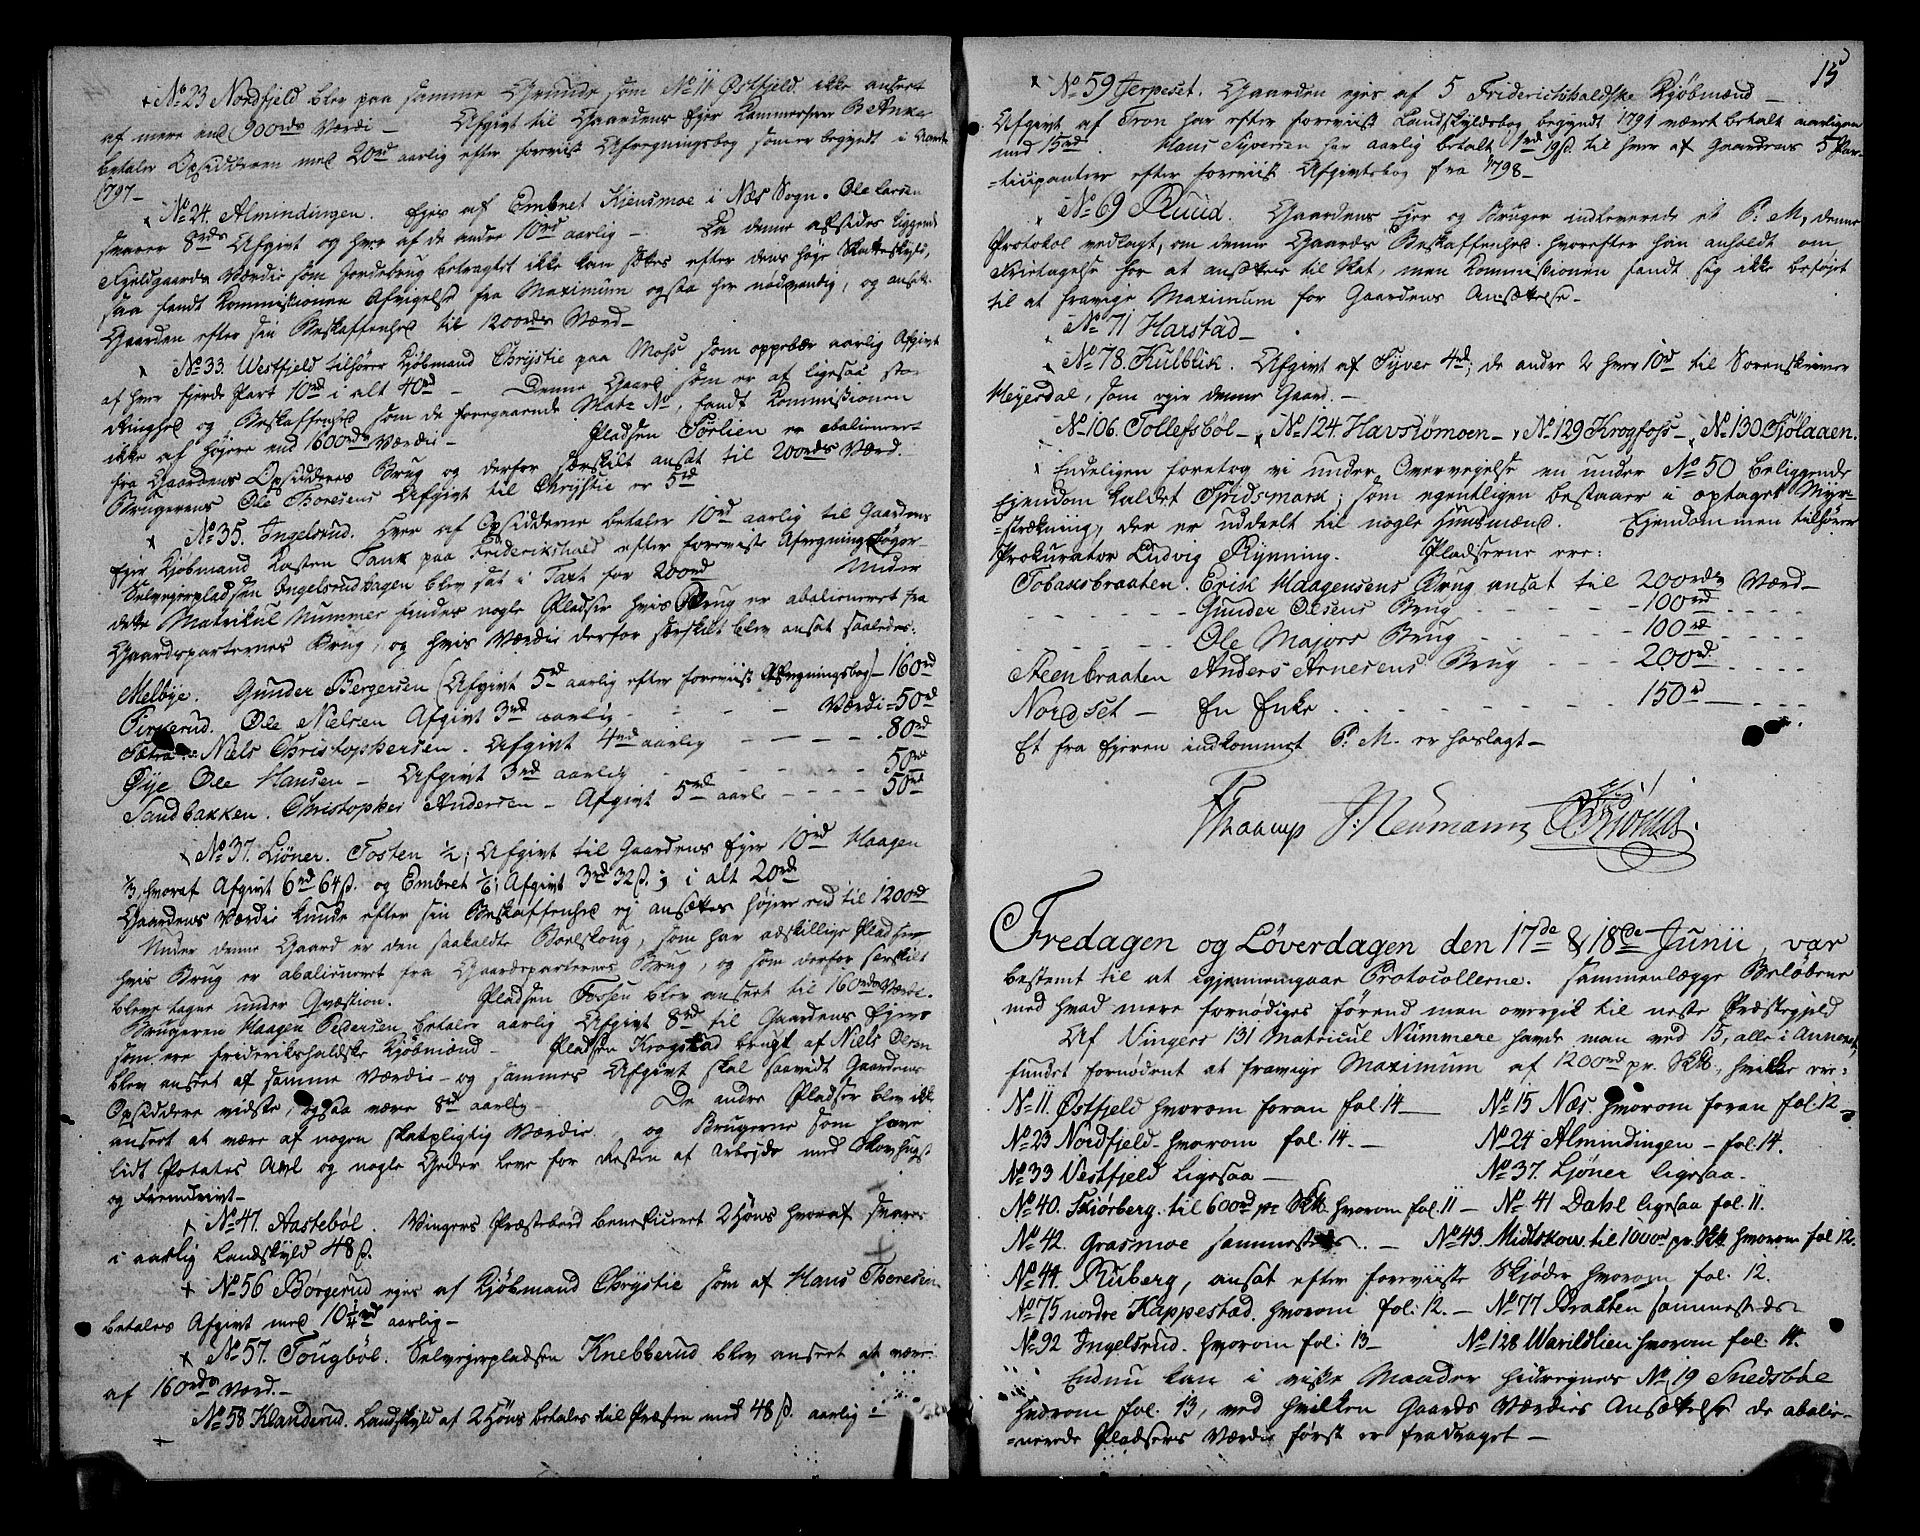 No 23 Nordfjeld blev paa samme Grunde som No 11 Østfjeld ikke anseet
af mere end 900rds Værdi – Afgivt til Gaardens Ejer Kammerherre B Anker
betaler Opsidderen med 20rd aarlig efter foreviist Afregningsbog som er begyndt i
1797 –
No 24. Almindingen. Ejes af Embret Kiensmoe i Næs Sogn. Ole Larsen
svarer 8rds Afgivt og hver af de andre 10rd aarlig – Da denne afsides liggende
Fjeldgaards Værdie som Jordebrug betragtet ikke kan sættes efter dens høje Skatteskyld,
saa fandt Kommissionen Afvigelse fra Maximum ogsaa her nødvendig, og ansatte
Gaarden efter sin Beskaffenhed til 1200rds Værd –
No 33. Westfjeld tilhører Kjøbmand Chrystie paa Moss som oppebær aarlig Afgivt
af hver fjerde Part 10rd i alt 40rd – Denne Gaard som er af ligesaa stor
Ringhed og Beskaffenhed som de foregaaende Matr No, fandt Kommissionen
ikke af højere end 1600rds Værdie – Pladsen Sørlien er abalieneret
fra Gaardens Opsidderes Brug og derfor særskilt ansat til 200rds Værd.
Brugerens Ole Thoresens Afgivt til Chrystie er 5rd
No 35. Ingelsrud. Hver af Opsidderne betaler 10rd aarlig til Gaardens
Ejer Kjøbmand Karsten Tank paa Frideriks­hald efter foreviste Afregningsbøger –
Selvejerpladsen Ingelsrudhagen blev sat i Taxt for 200rd Under
dette Matrikul Nummer findes nogle Pladser hvis Brug er abalieneret fra
Gaardsparternes Brug, og hvis Værdie derfor særskilt blev ansat saaledes:
Melbye. Gunder Bergersen (Afgivt 5rd aarlig efter foreviist Afregningsbog) – 160rd
Ole Nielsen Afgivt 3rd aarlig – – – Værdi = 50rd
Niels Christophersen. Afgivt 4rd aarlig – – – – 80rd
Øye Ole Hansen – Afgivt 3rd aarlig – – – – 50rd
Sandbakken. Christopher Andersen – Afgivt 5rd aarl – – – – 50rd
No 37. Liøner. Tosten ½; Afgivt til Gaardens Ejer 10rd Haagen
⅓, hvoraf Afgivt 6rd 64ß. og Embret ⅙; Afgivt 3rd 32ß.; i alt 20rd
Gaardens Værdie kunde efter sin Beskaffenhed ej ansættes højere end til 1200rd
Under denne Gaard er den saakaldte Borlskoug, som har adskillige Pladser
hvis Brug er abalieneret fra Gaardsparternes Brug, og som derfor særskilt
bleve tagne under Qvæstion. Pladsen Fossen blev anseet til 160rds Værdi.
Brugeren Haagen Pedersen betaler aarlig Afgivt 8rd til Gaardens Ejere
som ere frideriks­haldske Kjøbmænd – Pladsen Krogstad brugt af Niels Olsen
blev anseet af samme Værdie – og sammes Afgivt skal saavidt Gaardens
Opsiddere vidste, ogsaa være 8rd aarlig – De andre Pladser blev ikke
anseet at være af nogen skatpligtig Værdie, og Brugerne som have
lidt Potates Avl og nogle Geder leve for Resten af Arbejde med Skovhugst
og Fremdrivt –
No 47. Aastebøl. Vingers Præstebord beneficeret 2 Høns hvoraf svares
i aarlig Landskyld 48 ß.
No 56 Børgerud ejes af Kjøbmand Chrystie som af Hans Thoresen
betales Afgivt med 10¼rd aarlig –
No 57. Tougbøl. Selvejerpladsen Knebberud blev anseet at være
af 160rds Værd. –
No 58 Klanderud. Landskyld af 2 Høns betales til Præsten med 48 ß. aarlig –
15
No 59 Jerpeset. Gaarden ejes af 5 Friderichshaldske Kjøbmænd –
Afgivt af Tron har efter foreviist Landskyldsbog begyndt 1791 været betalt aarligen
med 15rd. Hans Syversen har aarlig betalt 1rd 19ß. til hver af Gaardens 5 Par-
-ticipanter efter foreviist Afgivtsbog fra 1798 –
No 69 Ruud. Gaardens Ejer og Bruger indleverede et P: M, denne
Protokol vedlagt, om denne Gaards Beskaffenhed. hvorefter han anholdt om
Fritagelse for at ansættes til Skat, men Kommissionen fandt sig ikke beføjet
til at fravige Maximum for Gaardens Ansættelse –
No 71 Harstad –
No 78. Kulblik. Afgivt af Syver 4rd; de andre 2 hver 10rd til Sorenskriver
Meyerdal, som ejer denne Gaard. –
No 106. Tollefsbøl – No 124. Havsiømoen – No 129 Krogfoss – No 130 Tiølaaen.
Endeligen foretog vi under Overvejelse en under No 50 beliggende
Ejendom kaldet Spidsmark; som egentligen bestaaer i optaget Myr-
-strækning, der er uddeelt til nogle Huusmænd. Ejendommen tilhører
Prokurator Ludvig Rynning. Pladserne ere:
Tobaksbraaten. Erik Haagensens Brug ansat til 200rds Værd –
– – – Gunder Olsens Brug – – – – 100rd – – –
– – – Ole Majors Brug – – – – 100rd – – –
Steenbraaten Anders Arnesens Brug – – – 200rd – – –
Nordset – En Enke – – – – 150rd – – –
Et fra Ejeren indkommet P: M. er her­lagt –
Thaarup J: Neumann
Fredagen og Løverdagen den 17de & 18de Junii, var
bestemt til at igjennemgaae Protocollerne. sammenlægge Beløbene
med hvad mere fornødiges førend man overgik til neste Præstegjeld
Af Vingers 131 Matricul Nummere havde man ved 15, alle i Annexet,
fundet fornødent at fravige Maximum af 1200rd pr. Skb., hvilke ere:
No 11. Østfjeld hvorom foran fol. 14 – No 15 Næs. hvorom foran fol. 12 –
No 23 Nordfjeld – hvorom fol. 14. – No 24 Almindingen – fol. 14.
No 33 Vestfjeld ligesaa – No 37. Liøner ligesaa.
No 40. Skiørberg. til 600rd pr Skb. hvorom fol. 11 – No 41 Dahl ligesaa fol. 11.
No 42. Grasmoe sammesteds. – No 43. Midtskou til 1000rd pr. Skb. hvorom fol 12.
No 44. Ruberg, ansat efter foreviiste Skjøder hvorom fol. 12.
No 75 nordre Kappestad. hvorom fol: 12. – No 77 Braaten sammesteds –
No 92 Ingelsrud. hvorom fol: 13 – No 128 Warildlien hvorom fol. 14.
Endnu kan i visse Maader hidregnes No 19 Snedsbøl
hvorom fol. 13, ved hvilken Gaards Værdies Ansættelse de abalie-
-nerede Pladsers Værdie først er fradraget –